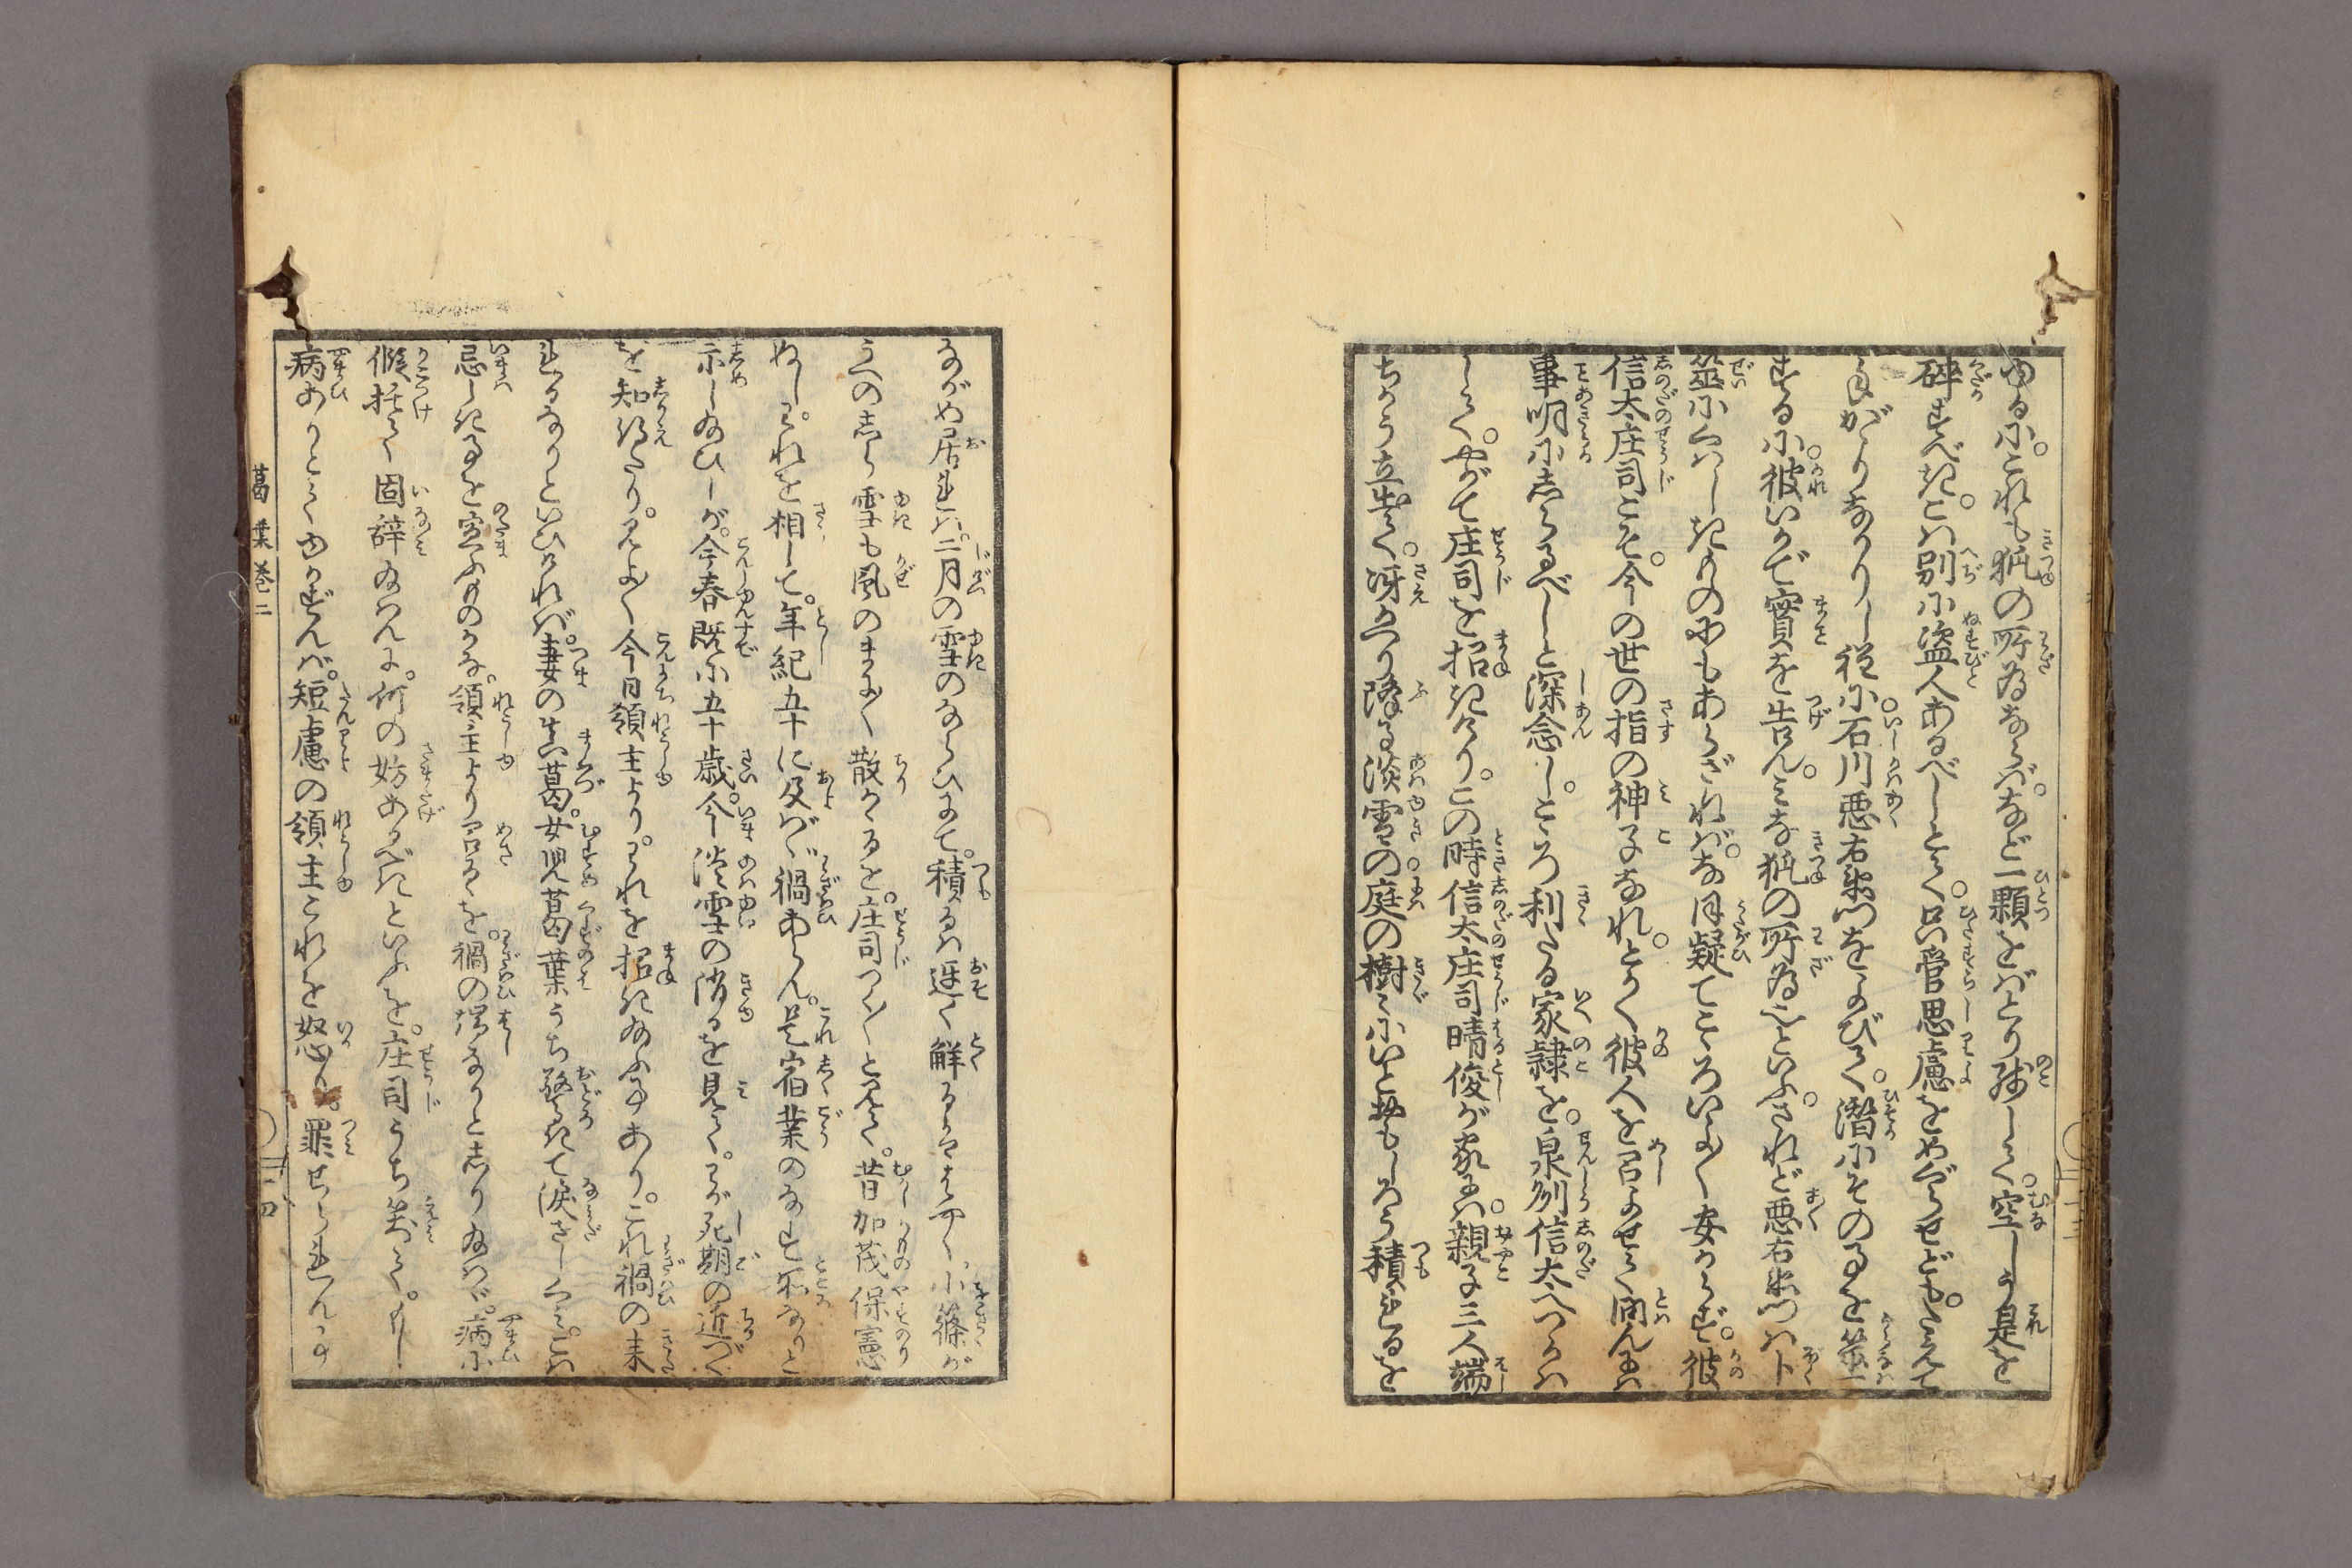 ゆるに。これも狐の所為ならば。など一顆をばとり殘して。空しう是を
碎すべき。こは別に盗人あるべしとて。只管思慮をめぐらせども。たえて
手がゝりなかりし程に。石川悪右衛門をよびて。潜にその事を筮
する に。彼いかで實を告ん。こもな狐の所為也といふ。されど悪右衛門は卜
筮にくはしきものにもあらざれば。なほ疑てこゝろいまだ安からず。彼
信太庄司こそ。今の世の指の神子なれ。とかく彼人を召よせて問んには
事明にしらるべしと深念し。こゝろ利たる家隷を。泉列信太へつかは
して。やがて庄司を招きけり。この時信太庄司晴俊が家には。親子三人端
ちかう立出て。冴かへり降る淡雪の。庭の樹々にいとおもしろう積れるを
ながめ居れば。二月の雪のならひにて。積るは遅く解るははやく。小篠が
うへのしら雪も風のまに〳〵散けるを。庄司つく〴〵と見て。昔加茂保憲
ぬし。われを相して。年紀五十に及ばゞ禍あらん。是宿業のなす所なりと
示し給ひしが。今春既に五十歳。今淡雪の消るを見て。わが死期の近づく
を知得たり。見よ〳〵今日領主より。われを招き給ふ事あり。これ禍の来
れるなりといひければ。妻の真葛。女児葛葉うち驚きて涙さしぐみ。こは
忌しき事を宣ふものかな。領主より召るゝを。禍の端なりとしり給はゞ。病に
假托て固辞給はんに。何の妨あるべきといふを。庄司うち笑て。もし
病ありとてゆかずんば。短慮の領主これを怒り。罪せられんか
葛葉巻二